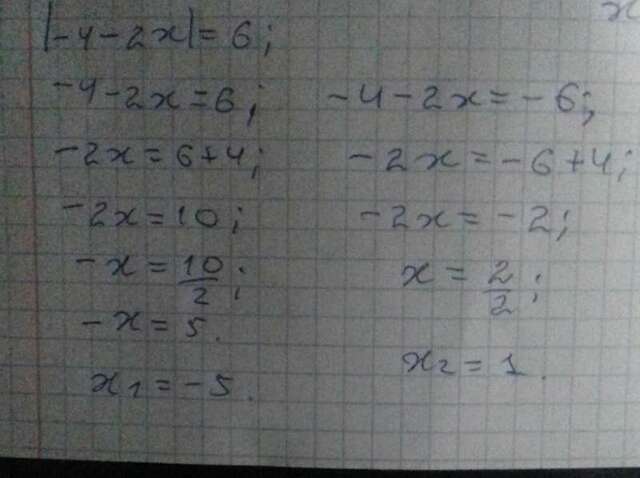 x
|-4-2x|=6;
-4-2x=6; -4-2x=-6;
-2x=6+4; -2x=-6+4;
-2x=10; -2x=-2;
-x=10/2; x=2/2;
-x=5.
x₁=-5. x₂=1.